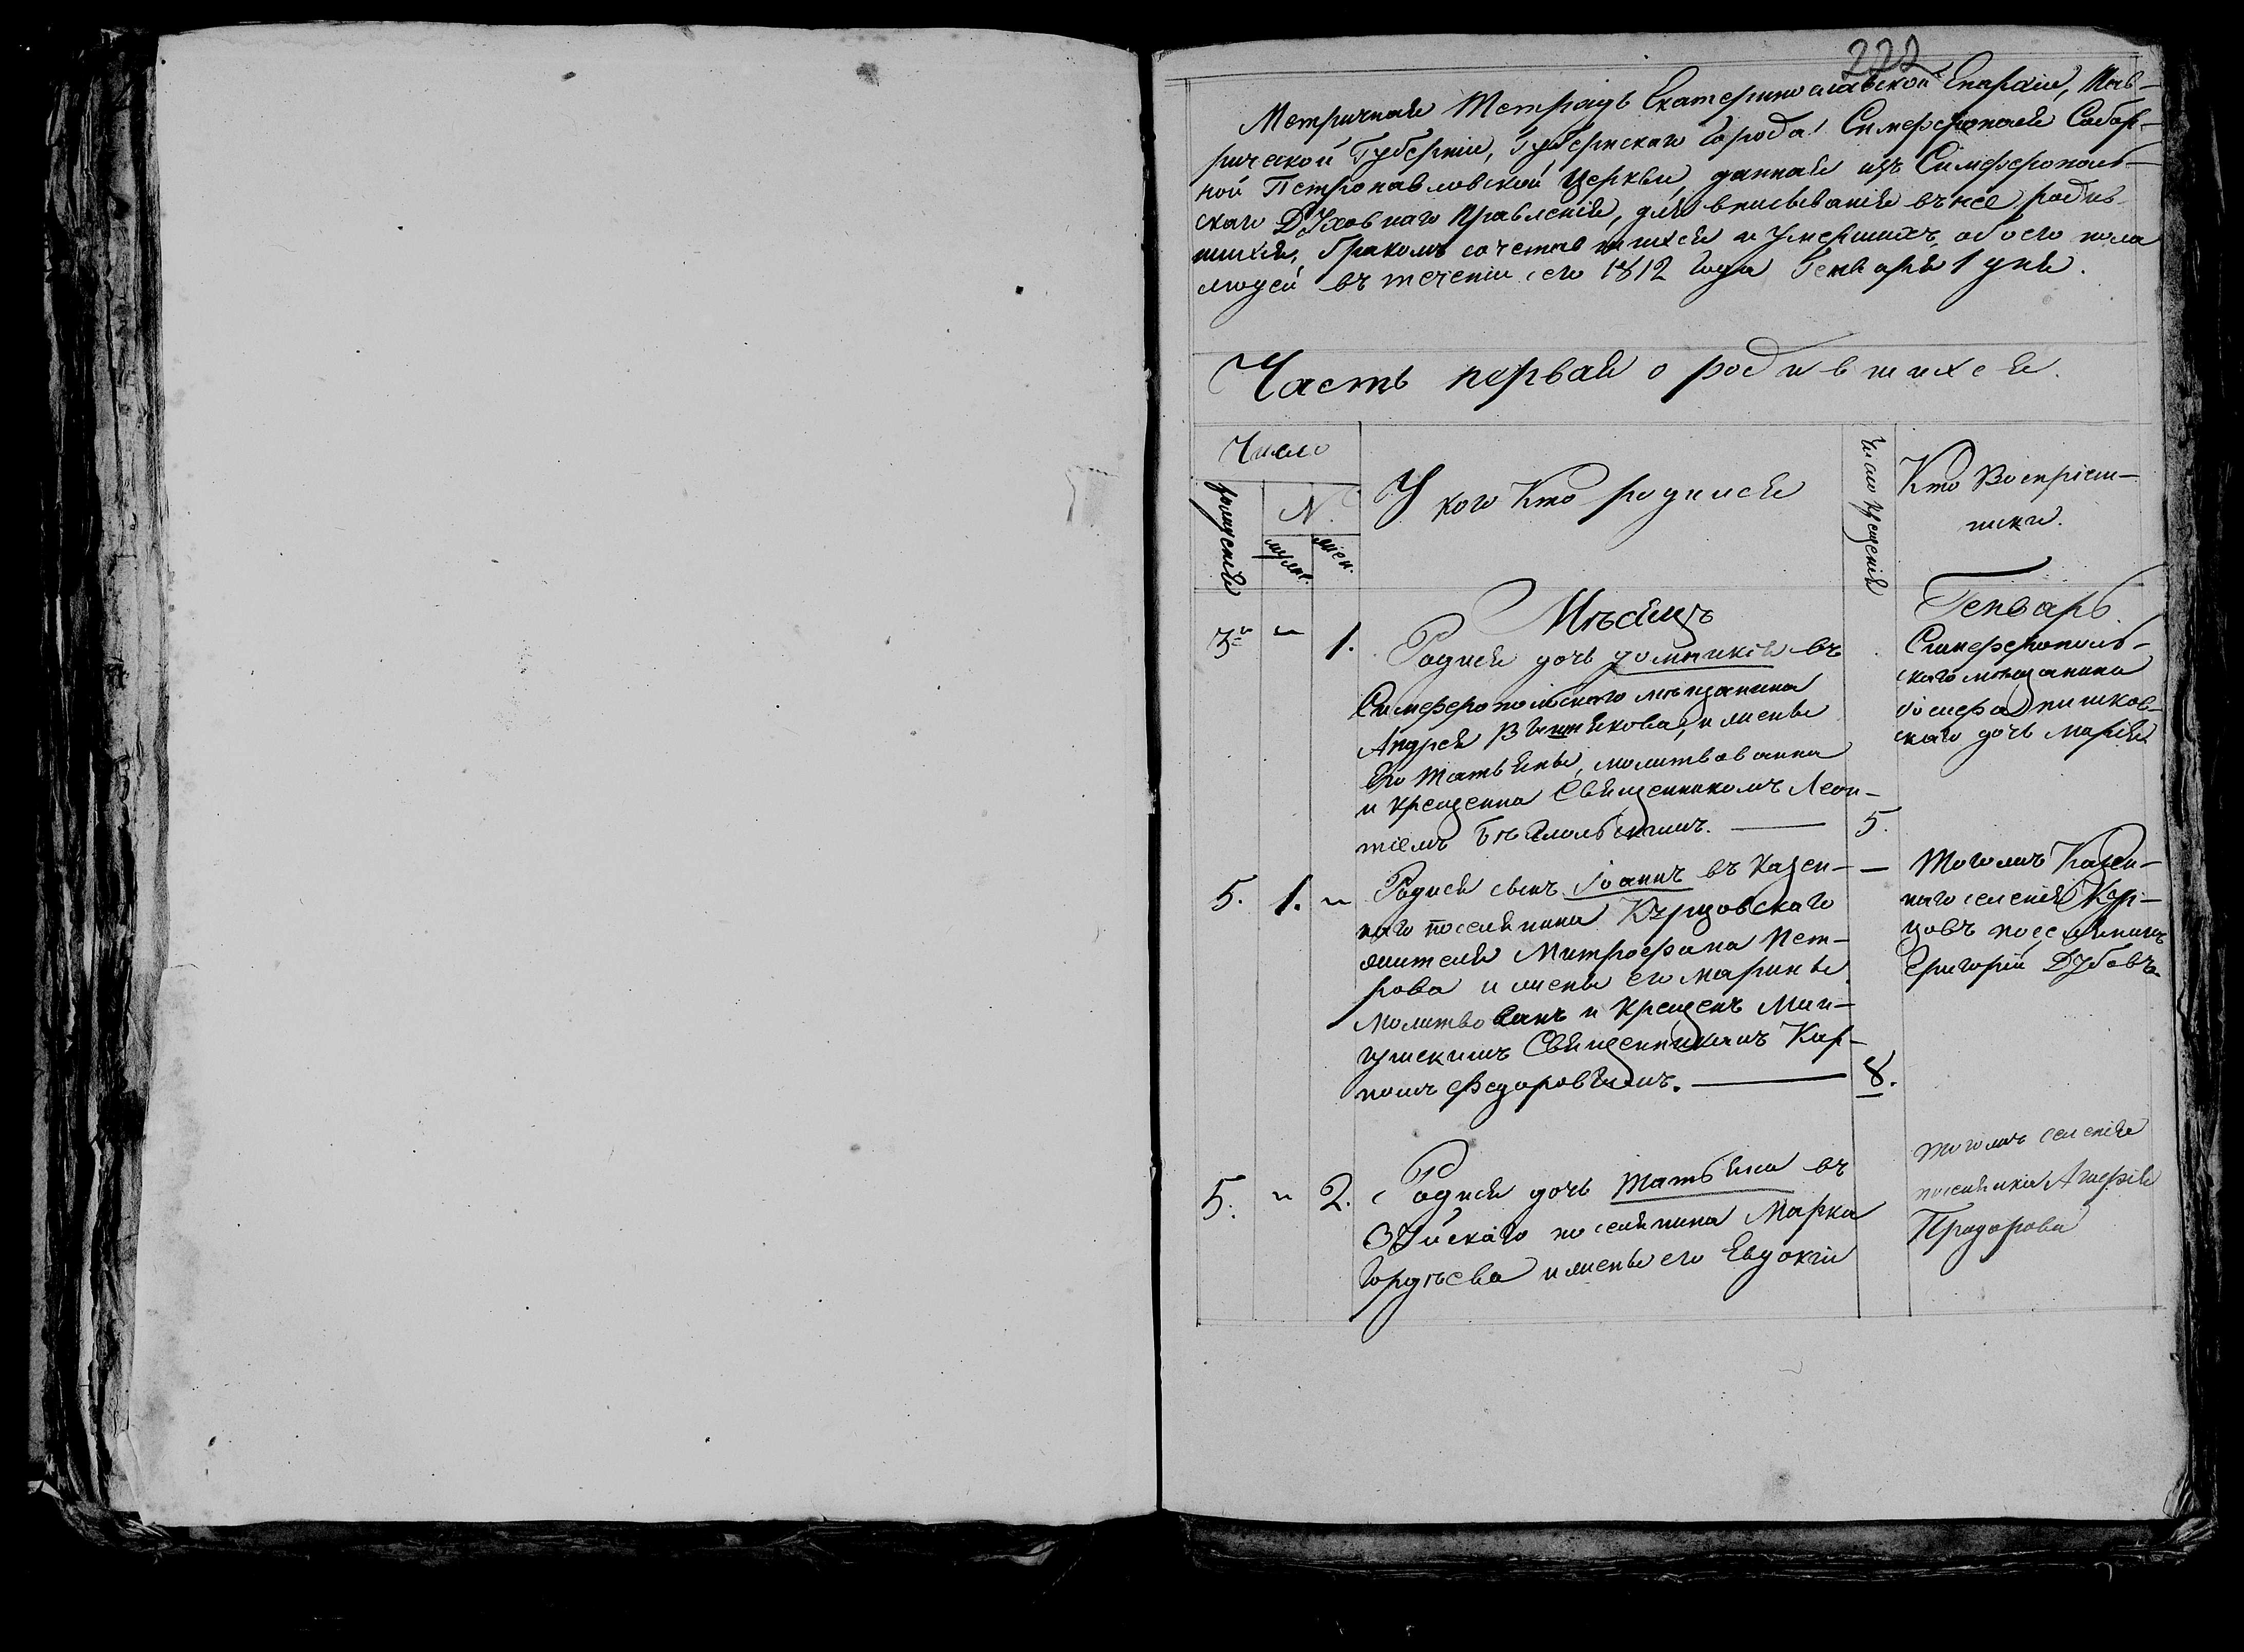 222
Метричная Тетрадь Екатеринославской Епархіи, Тав-
рической Губерніи, Губернскаго города Симферополя Собор-
ной Петропавловской церкви, данная изъ Симферополь-
скаго Духовнаго Правленія, для вписыванія въ нее родив-
шихся, бракомъ сочетавшихся и умершихъ, обоего пола
людей въ теченіи сего 1812 года Генваря 1 дня.
Часть первая о родившихся.
Число
рожденія
N.
муже.
жен.
У кого кто родился
Число крещенія
Кто Воспріем-
ники.
Мѣсяцъ
Генварь
3
1.
Родися дочь домникія въ
Симферопольскаго мѣщанина
Андрея и жены
его Татьяны, молитвованна
и крещенна Священникомъ Леон-
тіемъ
5.
Симферополь-
скаго мѣщанина
скаго дочь марія
5. 1.
Родися сынъ Іоаннъ въ Казен-
наго поселянина Курцовскаго
жителя Митрофана Пет-
рова и жены его марины
Молитвованъ и крещенъ Мин-
Священникомъ Кар-
помъ Федоровымъ.
8.
Тогожъ Казен-
наго селенія Кур-
цовъ поселянинъ
Григорій Дубовъ
5. 2.
Родися дочь Татьяна въ
Зуйскаго поселянина Марка
Гордѣева и жены его Евдокіи
тогожъ селенія
поселянка